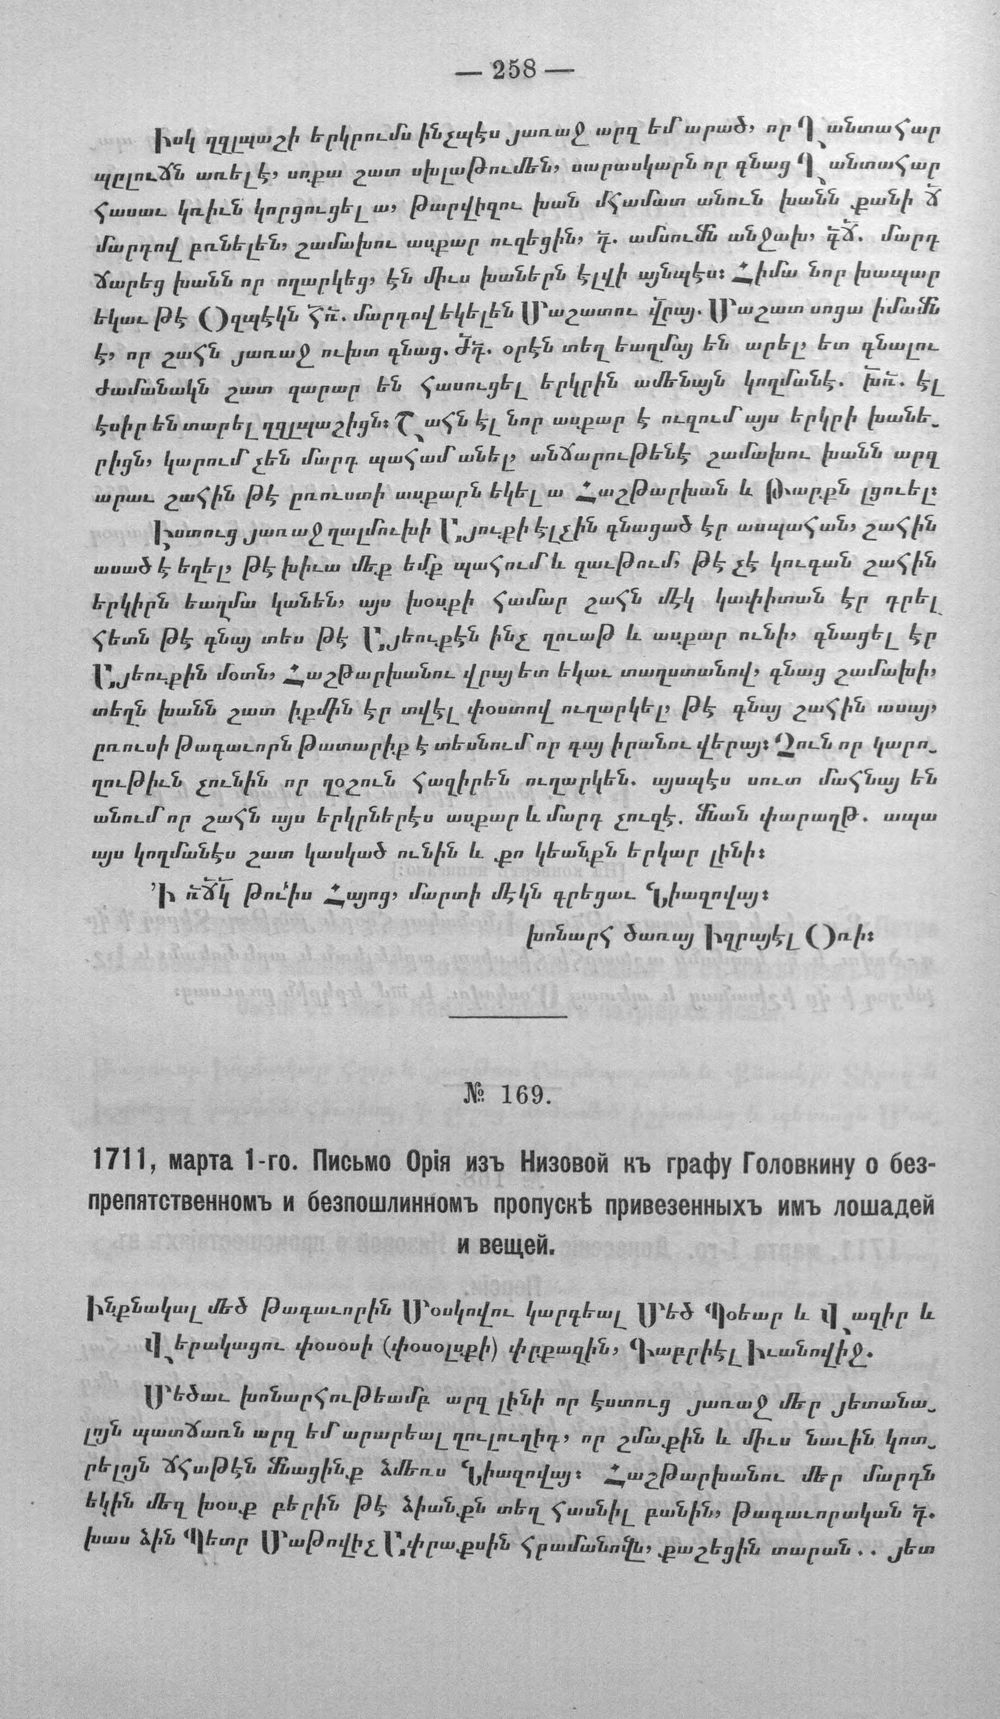 — 258 —
Իսկ ղզլպաշի երկրումս ինչպէս յառաջ արզ եմ արած, որ Ղանտահար
պըլուճն առել է, սոքա շատ սխլաթումեն, սարասկարն որ գնաց Ղանտահար
հասաւ կռիւն կորցուցել ա, թարվիզու խան մհամատ անուն խանն քանի ճ
մարդով բռնելեն, շամախու ասքար ուզեցին, դ. ամսումն անջախ, գճ. մարդ
ճարեց խանն որ ողարկեց, էն միւս խաներն էլվի այնպէս։ Հիմա նոր խապար
եկաւ թէ Օզպէկն հռ. մարդով եկելեն Մաշատու վրայ. Մաշատ սոցա իմամն
է, որ շահն յառաջ ուխտ գնաց. ժդ. օրէն տեղ եաղմայ են արել, ետ գնալու
ժամանակն շատ զարար են հասուցել երկրին ամենայն կողմանէ. խռ. էլ
էսիր են տարել ղզլպաշիցն։ Շահն էլ նոր ասքար է ուզում այս երկրի խանե֊
րիցն, կարում չեն մարդ պահամ անել, անճարութենէ շամախու խանն արզ
արաւ շահին թէ ըռուստի ասքարն եկել ա Հաշթարխան և Թարքն լցուել։
Իստուց յառաջ ղալմուխի Այուքի էլչին գնացած էր ասպահան, շահին
ասած է եղել, թէ խիւա մեք եմք պահում և զաւթում, թէ չէ կուգան շահին
երկիրն եաղմա կանեն, այս խօսքի համար շահն մէկ կափիտան էր դրել
հետն թէ գնայ տես թէ Այեուքէն ինչ ղուաթ և ասքար ունի, գնացել էր
Այեուքին մօտն, Հաշթարխանու վրայ ետ եկաւ տաղստանով, գնաց շամախի,
տեղն խանն շատ իքմին էր տվէլ փօստով ուղարկել, թէ գնայ շահին ասայ,
ըռուսի թագաւորն թատարիք է տեսնում որ գայ իրանու վերայ։ Չուն որ կարո֊
ղութիւն չունին որ ղօշուն հազիրեն ուղարկեն. այսպէս սուտ մահնայ են
անում որ շահն այս երկրներէս ասքար և մարդ չուզէ. մնան փարաղթ. ապա
այս կողմանէս շատ կասկած ունին և քո կեանքն երկար լինի։
Ի ռճկ թուիս Հայոց, մարտի մէկն գրեցաւ Նիազովայ։
խոնարհ ծառայ Իզրայէլ Օռի։
№ 169.
1711, марта 1-го. Письмо Орія изъ Низовой къ графу Головкину о без-
препятственномъ и безпошлинномъ пропускѣ привезенныхъ имъ лошадей
и вещей.
Ինքնակալ մեծ թագաւորին Մօսկովու կարգեալ Մեծ Պօեար և Վազիր և
Վերակացու փօսօսի (փօսօլսքի) փրքազին, Գաբրիէլ Իւանովիջ.
Մեծաւ խոնարհութեամբ արզ լինի որ էստուց յառաջ մեր յետանա֊
լոյն պատճառն արզ եմ արարեալ ղուլուղիդ, որ շմաքին և միւս նաւին կոտ֊
րելոյն ճհաթէն մնացինք ձմեռս Նիազովայ։ Հաշթարխանու մեր մարդն
եկին մեզ խօսք բերին թէ ձիանքն տեղ հասնիլ բանին, թագաւորական դ.
խաս ձին Պետր Մաթովիչ Ափրաքսին հրամանովն, քաշեցին տարան .. յետ